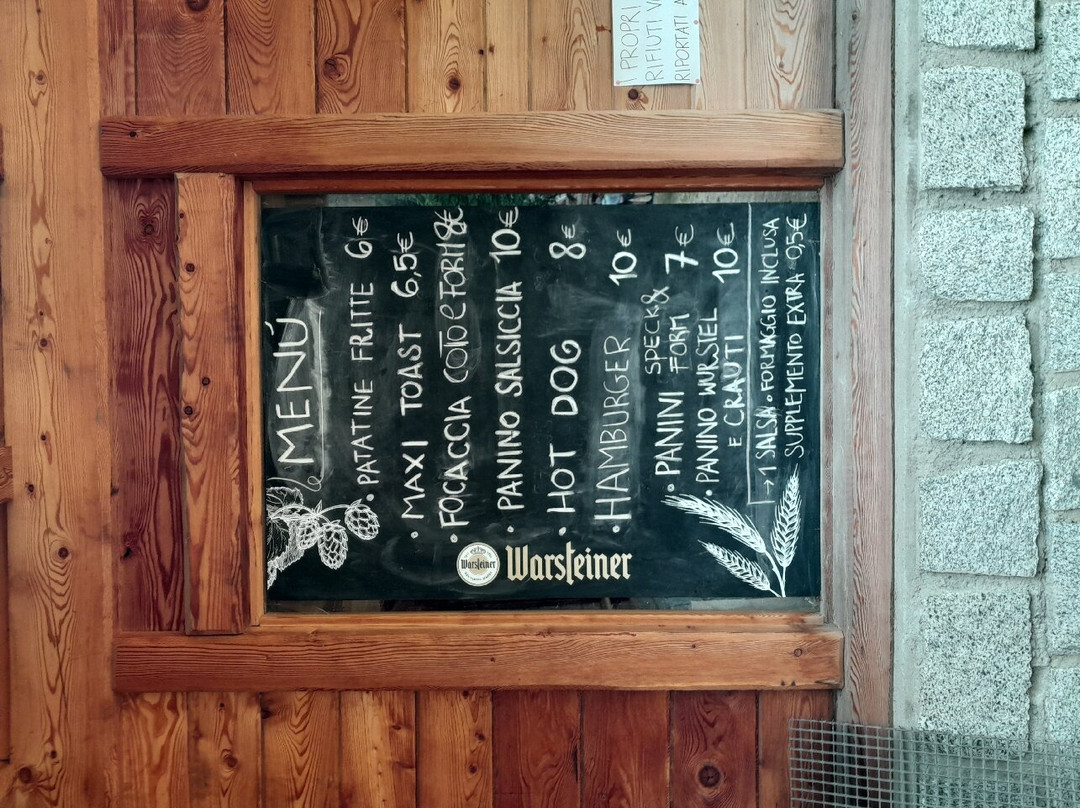 I PROPRI
RIFIUTI V
RIPORTATI A
MENÚ
• PATATINE FRITTE 6€
• MAXI TOAST 6,5€
• FOCACCIA COTTO e FORM 8€
• PANINO SALSICCIA 10€
• HOT DOG 8€
• HAMBURGER 10€
• PANINI SPECK & FORM 7€
• PANINO WURSTEL 10€
E CRAUTI
→ 1 SALSA • FORMAGGIO INCLUSA
SUPPLEMENTO EXTRA 0,5€
Warsteiner
Warsteiner